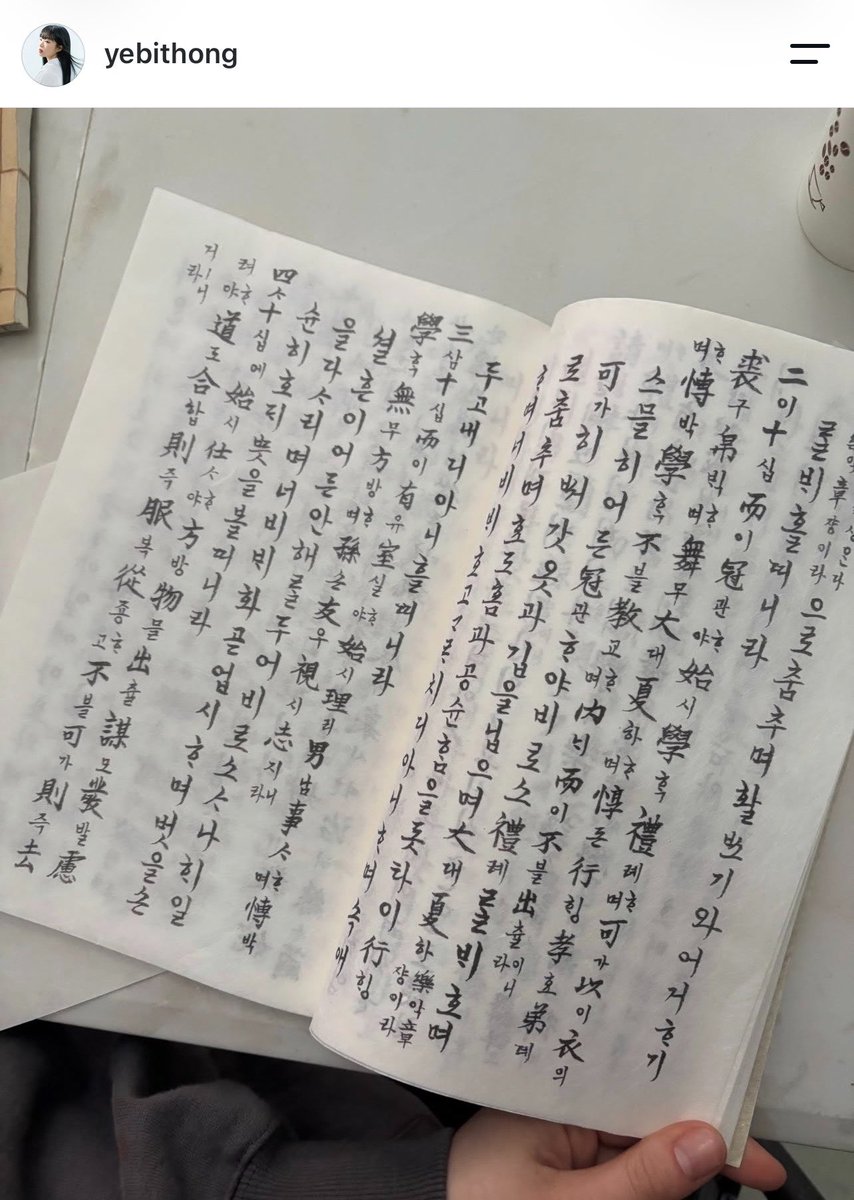 yebithong
章쟝이라으로춤추며활ᄡᅩ기와어거ᄒᆞ기
를ᄇᆡ홀띠니라
二이十십而이冠관ᄒᆞ야始시學ᄒᆞᆨ禮례ᄒᆞ며可가以이衣의
裘구帛ᄇᆡᆨᄒᆞ며舞무大대夏하ᄒᆞ며惇돈行ᄒᆡᆼ孝효弟뎨
ᄒᆞ며博박學ᄒᆞᆨ不블敎교ᄒᆞ며內ᄂᆡ而이不블出츌이니라
스믈히어든冠관ᄒᆞ야비로소禮례ᄅᆞᆯᄇᆡ호며
可가히ᄡᅥ갓옷과깁을닙으며大대夏하樂악章쟝이라
로춤추며효도홈과공슌홈을돗타이行ᄒᆡᆼ
ᄒᆞ며너비ᄇᆡ호고ᄀᆞᄅᆞ치디아니ᄒᆞ며속애
두고내디아니홀띠니라
三삼十십而이有유室실ᄒᆞ야始시理리男남事ᄉᆞᄒᆞ며博박
學ᄒᆞᆨ無무方방ᄒᆞ며孫손友우視시志지니라
셜흔이어든안해ᄅᆞᆯ두어비로소ᄉᆞ나ᄒᆡ일
을다ᄉᆞ리며너비ᄇᆡ화곧업시ᄒᆞ며벗을손
슌히호ᄃᆡ뜻을볼띠니라
四ᄉᆞ十십에始시仕ᄉᆞᄒᆞ야方방物믈出츌謀모發발慮
려ᄒᆞ야道도合합則즉服복從죵ᄒᆞ고不블可가則즉去
거ㅣ니라